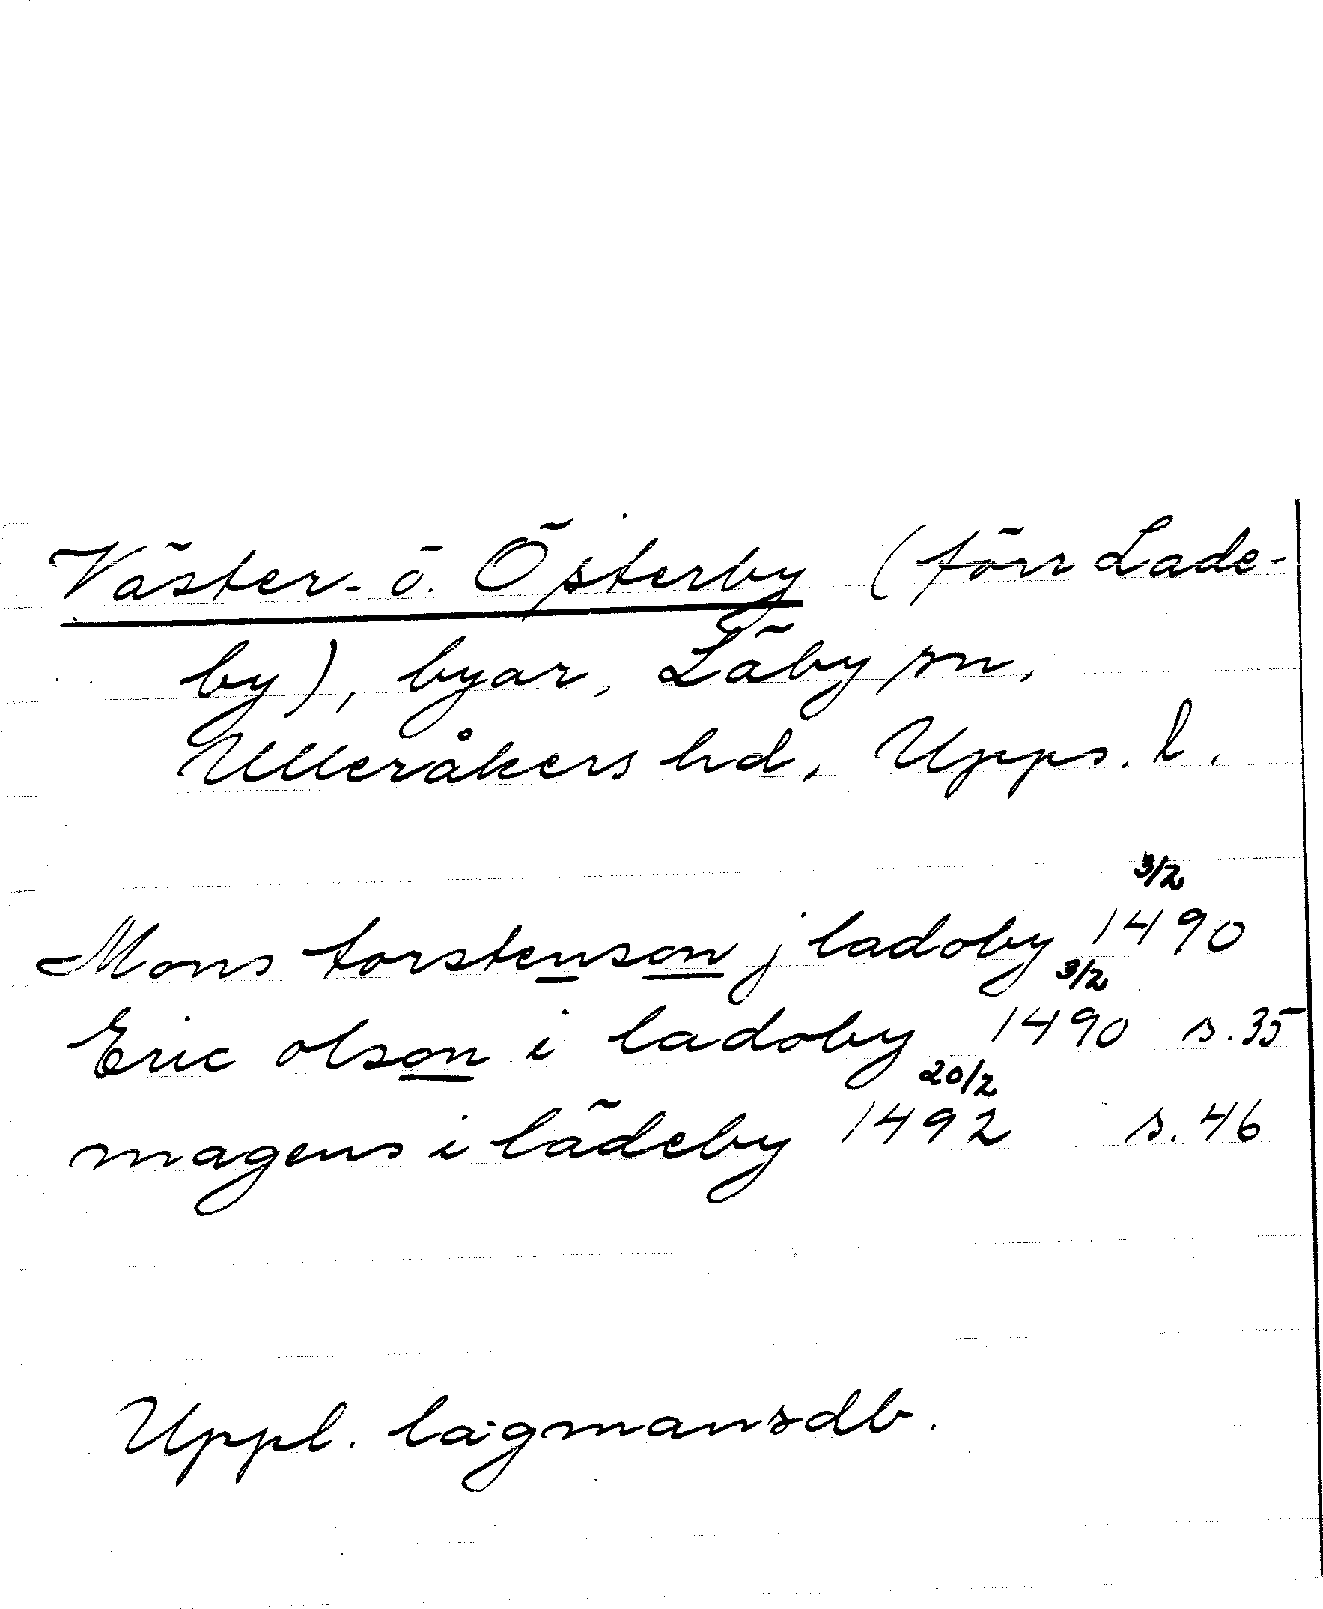 Väster- o. Österby (förr Lade-
by), byar, Läby sn,
Ulleråkers hd, Upps. l.
Mons torstenson j ladoby 3/2 1490
Eric olson i ladoby 3/2 1490 s. 35
magens i lädeby 20/2 1492 s. 46
Uppl. lagmansdb.